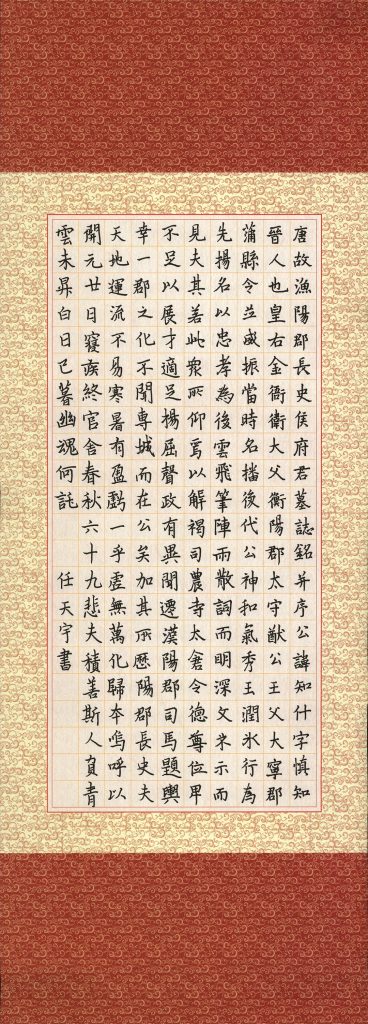 唐故漁陽郡長史侯府君墓誌銘并序公諱知什字慎知
晉人也皇右金衙衛大父衡陽郡太守猷公王父大寧郡
蒲縣令並威振當時名播後代公神和氣秀玉潤氷行為
先揚名以忠孝為後雲飛筆陣雨散詞而明深文米示而
見夫其若此衆所仰焉以解褐司農寺太倉令德尊位甲
不足以展才適足揚屈聲政有異聞遷漢陽郡司馬題輿
幸一郡之化不聞專城而在公矣加其所歷陽郡長史夫
天地運流不易寒暑有盈虧一乎虛無萬化歸本嗚呼以
開元廿日寢疾終官舍春秋六十九悲夫積善斯人負青
雲未昇白日已暮幽魂何託 任天宇書